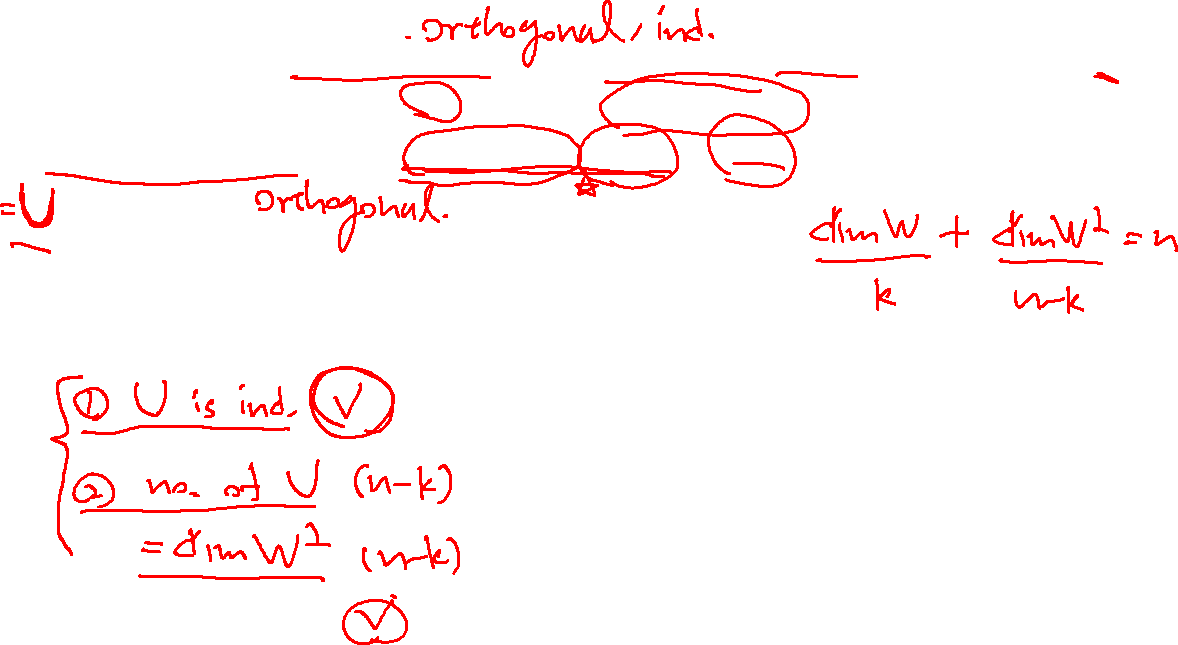 . orthogonal, ind.
= U
orthogonal.
dim W + dim W⊥ = n
k n-k
① U is ind. V
② no. of U (n-k)
= dim W⊥ (n-k)
V